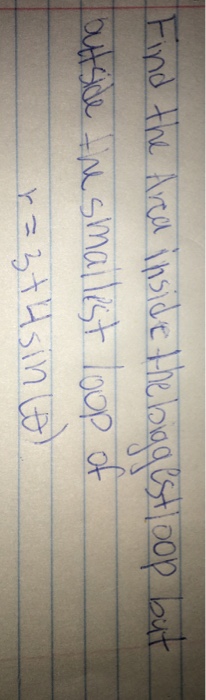 Find the Area inside the biggest loop but
outside the smallest loop of
r = 3 + 4 sin(θ)